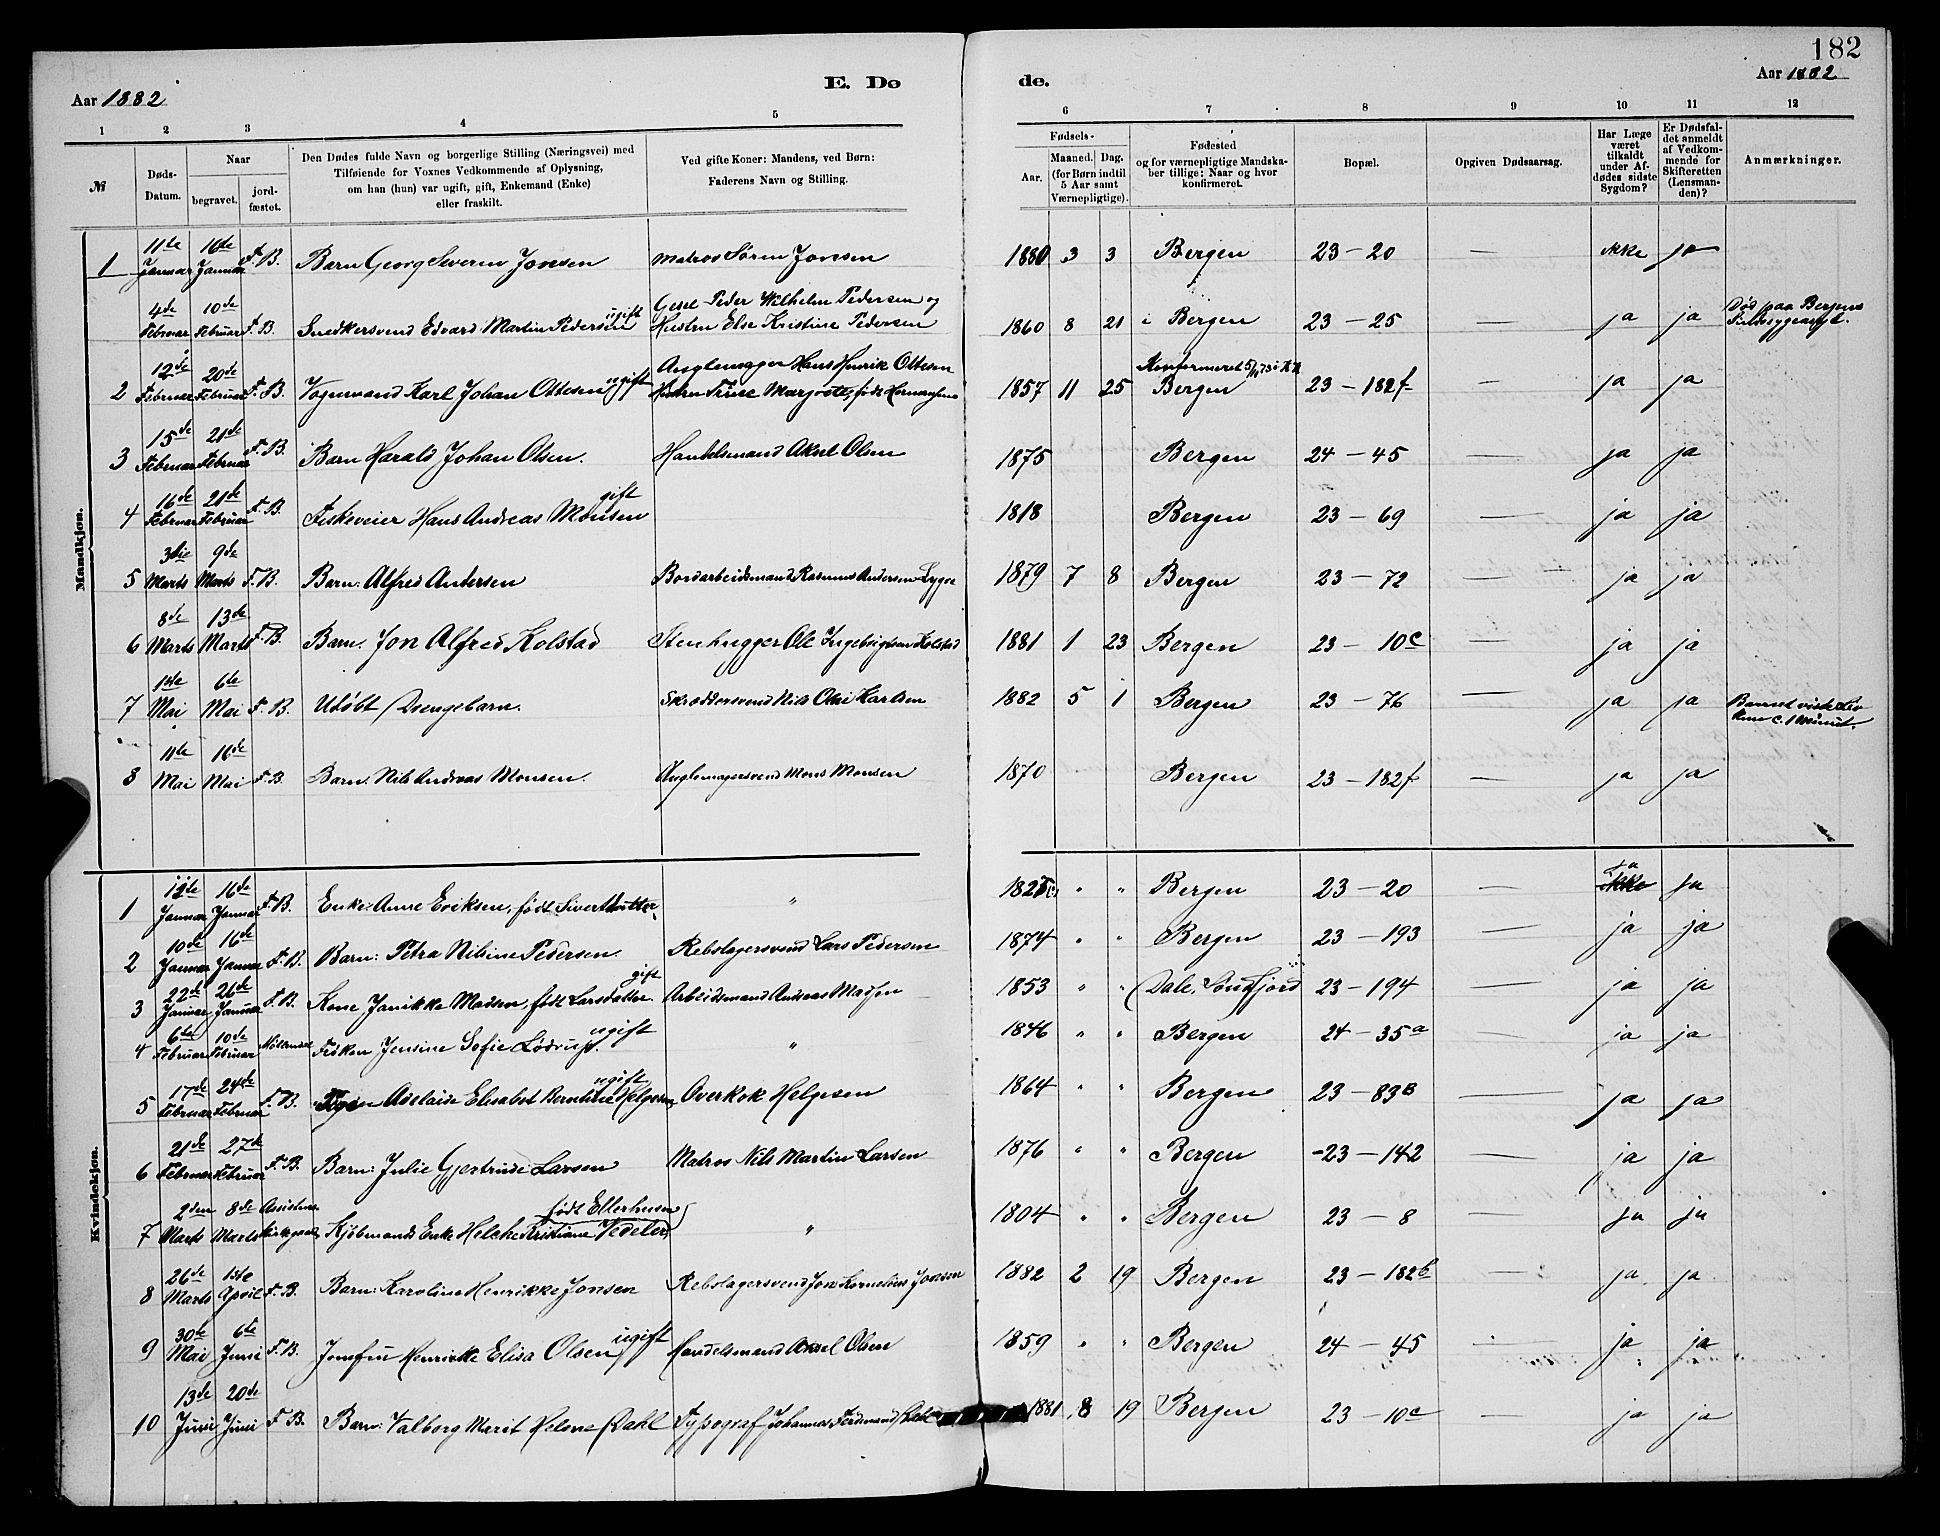 182
Aar 1882
E. Dø
de.
Aar 1882
1 2 3 4 5 6 7 8 9 10 11 12
№
Døds-Datum.
Naar
begravet.
jord-fæstet.
Den Dødes fulde Navn og borgerlige Stilling (Næringsvei) med
Tilføiende for Voxnes Vedkommende af Oplysning,
om han (hun) var ugift, gift, Enkemand (Enke)
eller fraskilt.
Ved gifte Koner: Mandens, ved Børn:
Faderens Navn og Stilling.
Fødsels-
Aar.
Maaned. Dag.
(for Børn indtil
5 Aar samt
Værnepligtige).
Fødested
og for værnepligtige Mandska-
ber tillige: Naar og hvor
konfirmeret.
Bopæl.
Opgiven Dødsaarsag.
Har Læge
været
tilkaldt
under Af-
dødes sidste
Sygdom?
Er Dødsfal-
det anmeldt
af Vedkom-
mende for
Skifteretten
(Lensman-
den)?
Anmærkninger.
Mandkjøn.
1 11te Januar 16de Januar F.B. Barn Georg Severin Jonsen Matros Sören Jonsen 1880 3 3 Bergen 23 - 20 — ikke ja
4de Februar 10de Februar F.B. Snedkersvend Edvard Martin Pedersen ugift Peder Wilhelm Pedersen og Hustru Else Kristine Pedersen 1860 8 21 i Bergen 23 - 25 — ja ja Død paa Bergens
2 12de Februar 20de Februar F.B. Vognmand Karl Johan Ottesen ugift Hans Henrik Ottesen Hustru Trine 1857 11 25 Konfirmeret Bergen 23 - 182f — ja ja
3 15de Februar 21de Februar F.B. Barn Harald Johan Olsen. Handelsmand Aksel Olsen 1875 Bergen 24 - 45 — ja ja
4 16de Februar 21de Februar F.B. Fiskeveier Hans Andreas Monsen gift 1818 Bergen 23 - 69 — ja ja
5 3die Marts 9de Marts F.B. Barn: Alfred Andersen Bordarbeidsmand Rasmus Andersen Lygre 1879 7 8 Bergen 23 - 72 — ja ja
6 8de Marts 13de Marts F.B. Barn. Jon Alfred Kolstad Stenhugger Ole Ingebrigtsen Kolstad 1881 1 23 Bergen 23 - 10c — ja ja
7 1ste Mai 6te Mai F.B. Udöbt Drengebarn. Skræddersvend Nils Olai Karlsen 1882 5 1 Bergen 23 - 76 — ja ja Barnet c. 1 Minut.
8 11te Mai 16de Mai F.B. Barn. Nils Andreas Monsen. Mons Monsen 1870 Bergen 23 - 182f — ja ja
Kvindekjøn.
1 12te Januar 16de Januar F.B. Enke: Anne Eriksen, født Sivertdatter. " " " Bergen 23 - 20 — ja ikke ja
2 10de Januar 16de Januar F.B. Barn: Petra Nilsine Pedersen. Rebslagersvend Lars Pedersen 1874 " " Bergen 23 - 193 ja ja
3 22de Januar 26de Januar F.B. Kone Janikke Madsen, født Larsdatter. gift Arbeidsmand Andreas Madsen 1853 " " Dale, Söndfjord 23 - 194 — ja ja
4 6te Februar 10de Februar Möllendal Fröken Jensine Sofie Lödrup. ugift " 1846 " " Bergen 24 - 35a — ja ja
5 17de Februar 24de Februar F.B. Adelaide Elisabet Berntine Helgesen ugift Overkok Helgesen 1864 " " Bergen 23 - 83B — ja ja
6 21de Februar 27de Februar F.B. Barn: Julie Gjertrude Larsen Matros Nils Martin Larsen 1876 " " Bergen 23 - 142 — ja ja
7 2den Marts 8de Marts Assistens Kirkegaard Kjöbmands Enke Helche Kristiane Vedeler født Ellerhusen " 1804 " " Bergen 23 - 8 — ja ja
8 26de Marts 1ste April F.B. Barn: Karoline Henrikke Jonsen Rebslagersvend Jon Kornelius Jonsen 1882 2 19 Bergen 23 - 182b — ja ja
9 30te Mai 6te Juni F.B. Jomfru Henrikke Elisa Olsen ugift Handelsmand Aksel Olsen 1859 " " Bergen 24 - 45 — ja ja
10 13de Juni 20de Juni F.B. Barn: Valborg Marit Helene Dahl Typograf Johannes Ferdinand 1881 8 19 Bergen 23 - 10c — ja ja